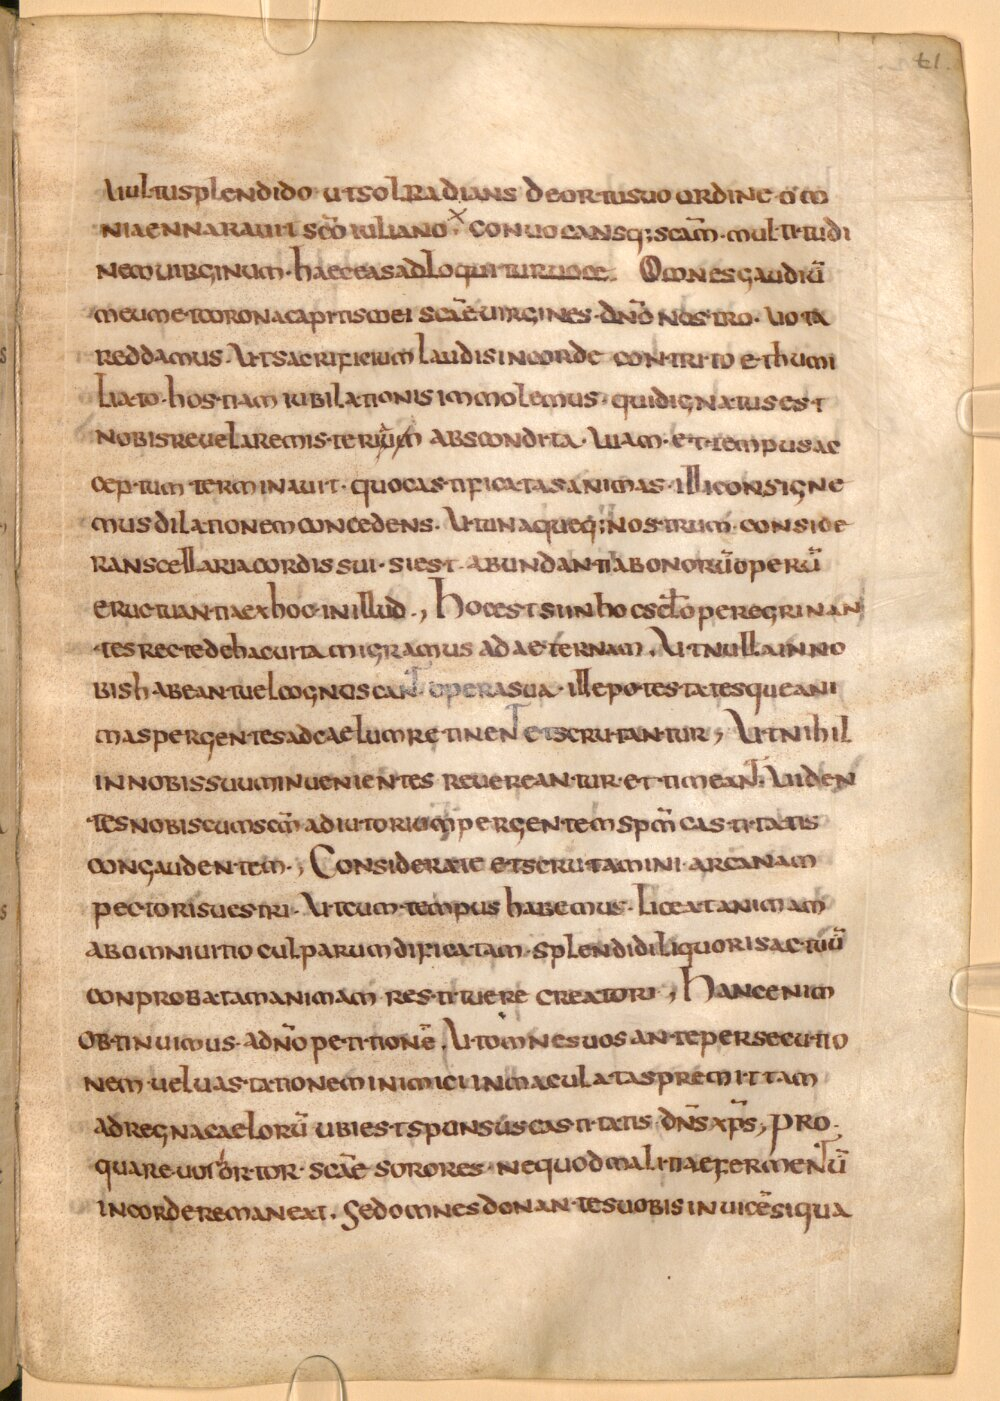 41.
Uultu splendido · ut sol radians de ortu suo ordine · om̅
nia ennarauit sc̅o iuliano · × conuocansq; sca̅m · multitudi
nem uirginum · haec eas adloquitur uoce · Omnes gaudiu̅
meum et corona capitis mei sca̅e uirgines · dn̅o nostro · uota
reddamus · Ut sacrificium laudis in corde contrito et humi
liato · hostiam iubilationis immolemus · qui dignatus est
nobis reuelare misterium abscondita · uiam · et tempus ac
ceptum terminauit · quo castificatas animas · illi consigne
mus dilationem concedens · Ut unaqueq; nostrum · conside
rans cellaria cordis sui · si est abundantia bonoru̅ operu̅
eructuantia ex hoc in illud ·, hoc est si in hoc sc̅lo peregrinan
tes recte de hac uita migramus ad aeternam · Ut nulla in no
bis habeant uel cognoscant opera sua · ille potestates que ani
mas pergentes ad caelum retinent et scrutantur , Ut nihil
in nobis suum inuenientes reuereantur · et timeant · Uiden
tes nobiscum sc̅m adiutorium pergentem sp̅m castitatis
congaudentem ·, Considerate et scrutamini · arcanam
pectoris uestri · Ut cum tempus habemus · liceat animam
ab omni uitio culparum dificatam · splendidi liquoris actuu̅
conprobatam animam restituere creatori , hanc enim
obtinuimus · ad dn̅o petitione̅ · Ut omnes uos ante persecutio
nem uel uastationem inimici inmaculatas premittam
ad regna caeloru̅ ubi est spunsus castitatis dn̅s xp̅s , Pro
quare uos ortor · sca̅e sorores · ne quod malitiae fermentu̅
in corde remaneat · Sed omnes donantes uobis inuice̅ si qua